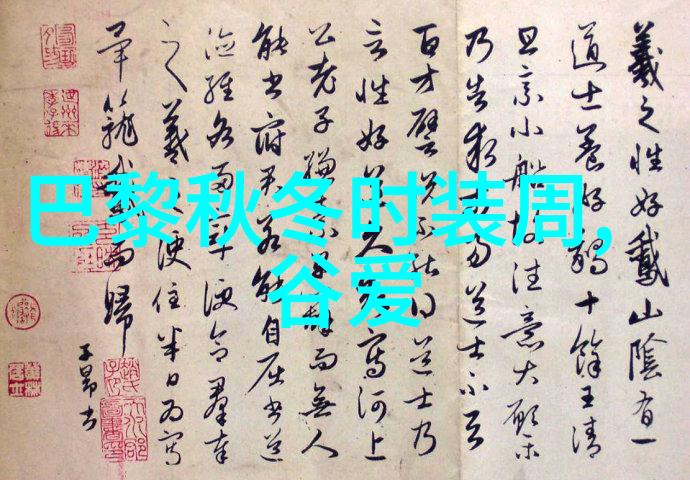 巴黎秋冬时装周,
谷爱
羲之性好鵞山陰有一
道士養好鵝十餘王清
旦乘小船故往意大願樂
乃告求市易道士不與
百方譬說不能得道士乃
言性好道久欲寫河上
公老子縑素早辦而無人
能書府君若能自屈書道
德經各兩章便合羣奉
羲之便住半日為寫
畢籠而歸
子昂書